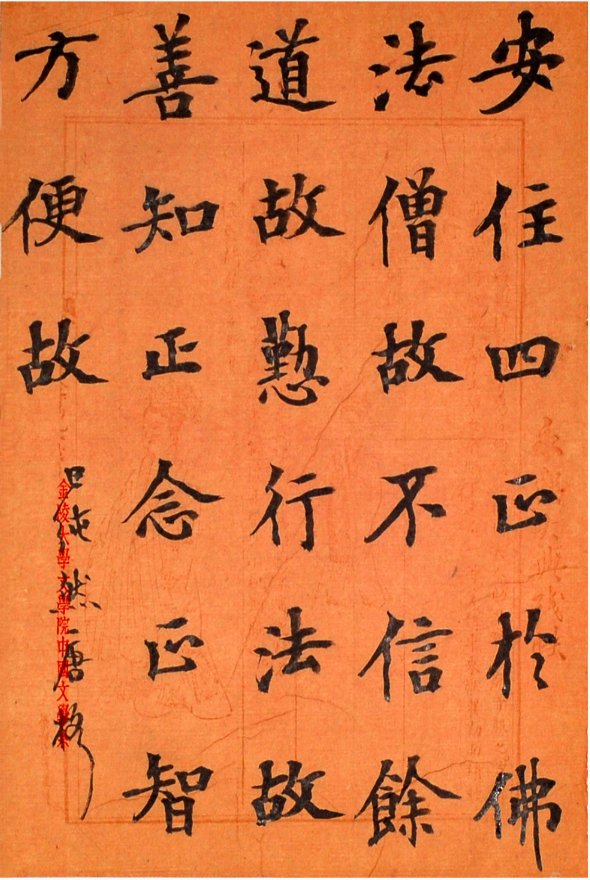 安住四正於佛
法僧故不信餘
道故懃行法故
善知正念正智
方便故
金陵大學文學院中國文學系